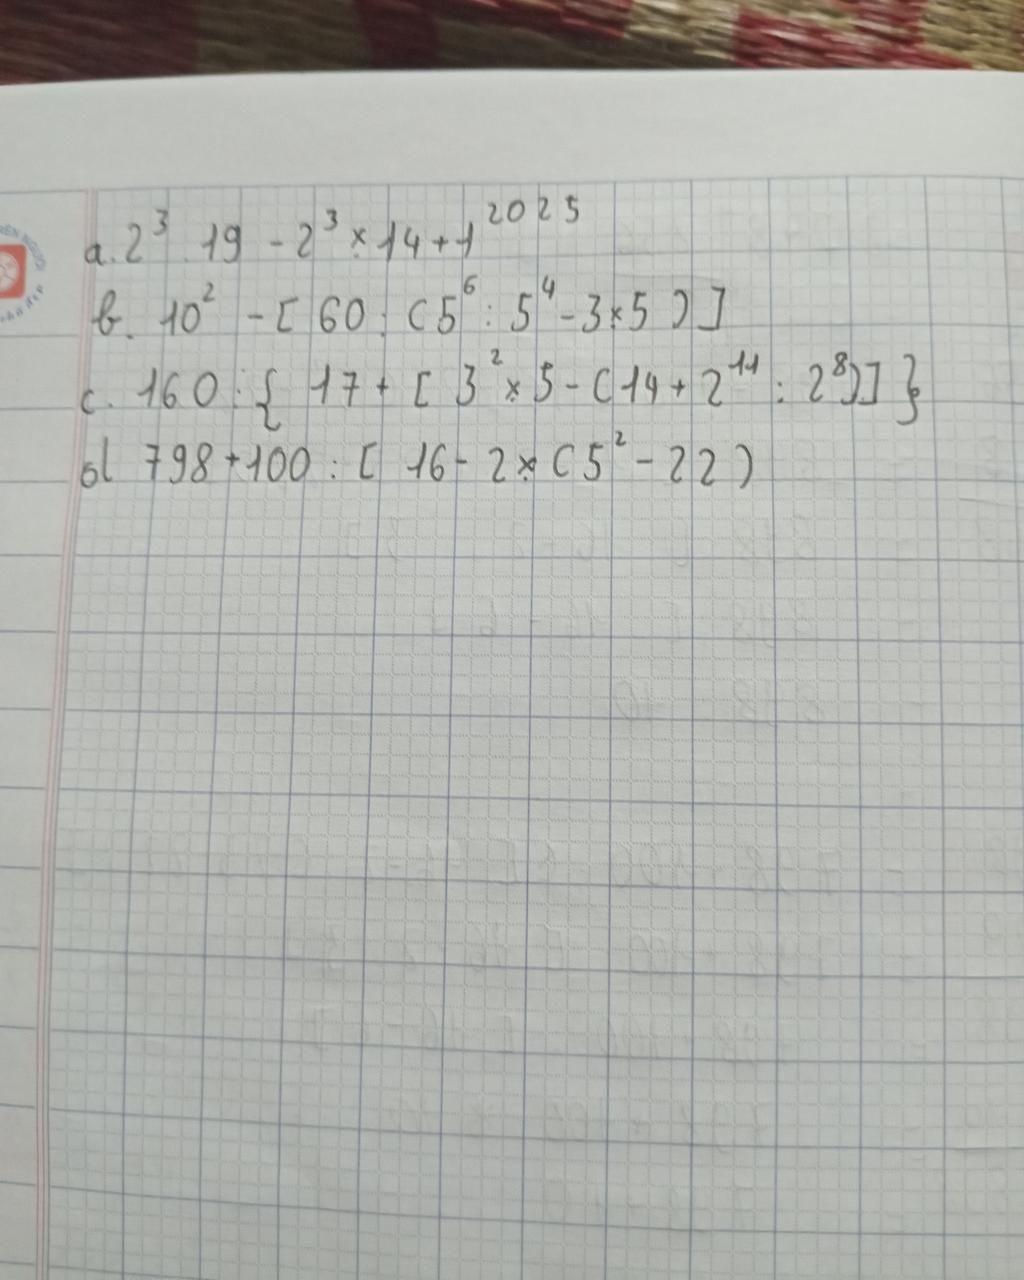 a. 2³ . 19 - 2³ × 14 + 1²⁰²⁵
b. 10² - [ 60 : ( 5⁶ : 5⁴ - 3 × 5 ) ]
c. 160 : { 17 + [ 3² × 5 - ( 14 + 2¹¹ : 2⁸ ) ] }
d 798 + 100 : [ 16 - 2 × ( 5² - 22 )